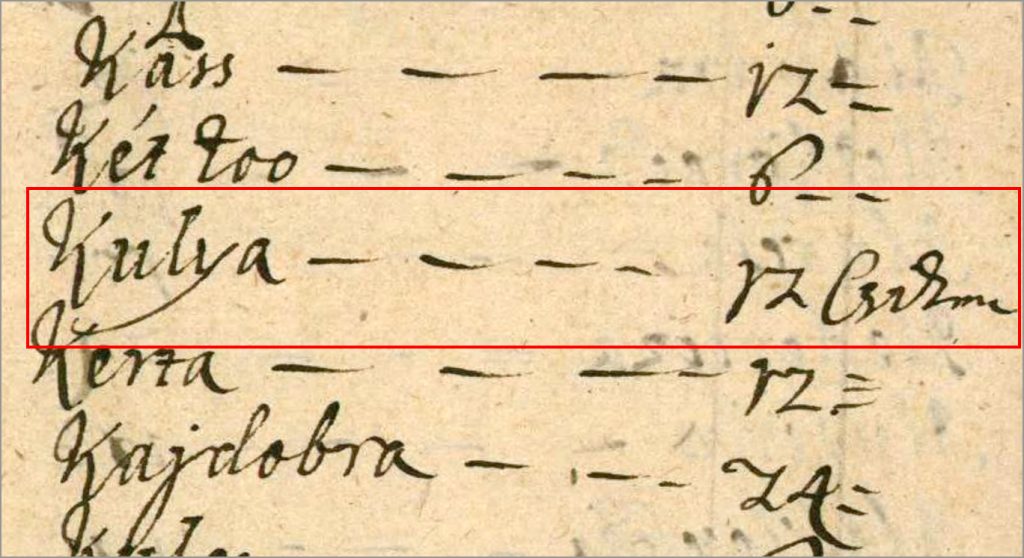 Káss — — — — 12 =
Két too — — — — 6 - -
Kulya — — — — 12
Kerta — — — — 12 =
Kajdobra — — — — 24 =